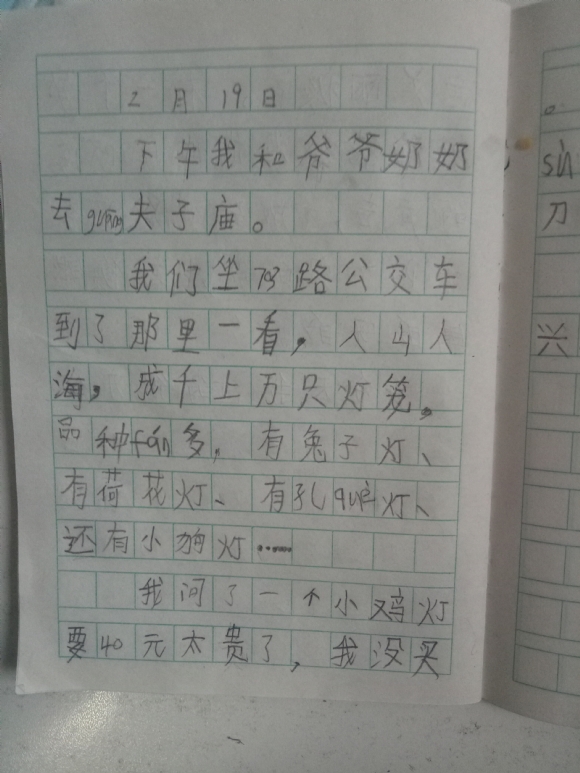 2月19日
下午我和爷爷奶奶
去guàng夫子庙。
我们坐703路公交车
到了那里一看，人山人
海，成千上万只灯笼，
品种fán多，有兔子灯、
有荷花灯、有孔què灯、
还有小狗灯……
我问了一个小鸡灯
要40元太贵了，我没买
。
sù
刀
兴